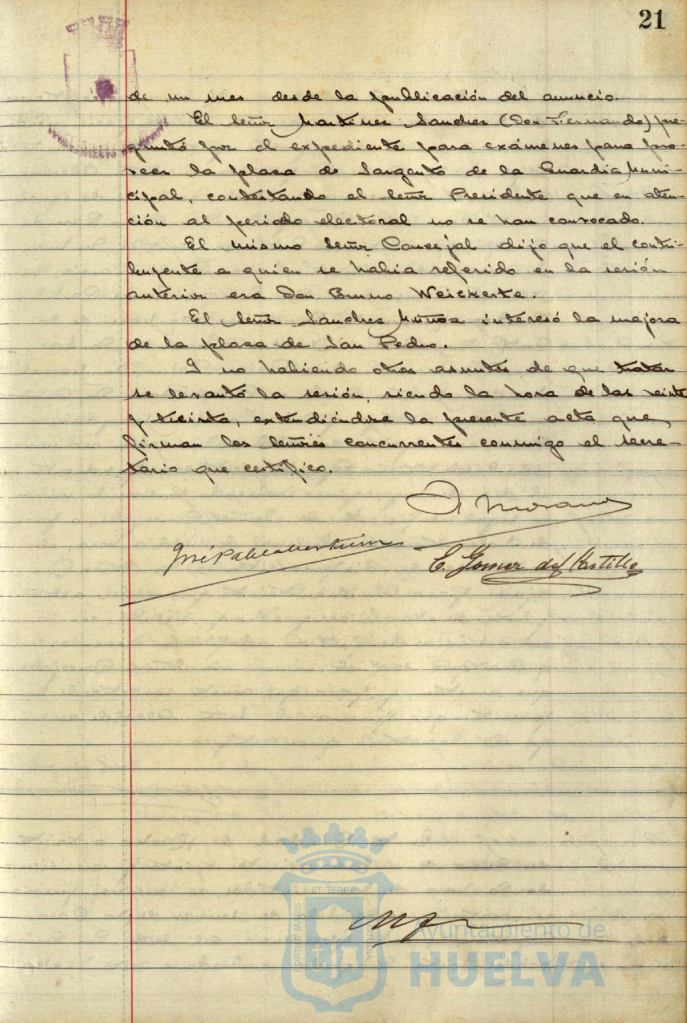 21
de un mes desde la publicación del anuncio.
El Señor Martinez Sanchez (Don Fernando) pre-
guntó por el expediente para exámenes para pro-
veer la plaza de Sargento de la Guardia Muni-
cipal, contestando el Señor Presidente que en aten-
ción al periodo electoral no se han convocado.
El mismo Señor Concejal dijo que el contri-
buyente a quien se habia referido en la sesión
anterior era Don Bruno Weickerte.
El Señor Sanchez Muñoz interesó la mejora
de la plaza de San Pedro.
Y no habiendo otros asuntos de que tratar
se levantó la sesión, siendo la hora de las veinte
y treinta, extendiéndose la presente acta que,
firman los Señores concurrentes conmigo el secre-
tario que certifico.
José
E. Gomez del Castillo
ET TERRA
PORTUS MARIS
Ayuntamiento de
HUELVA